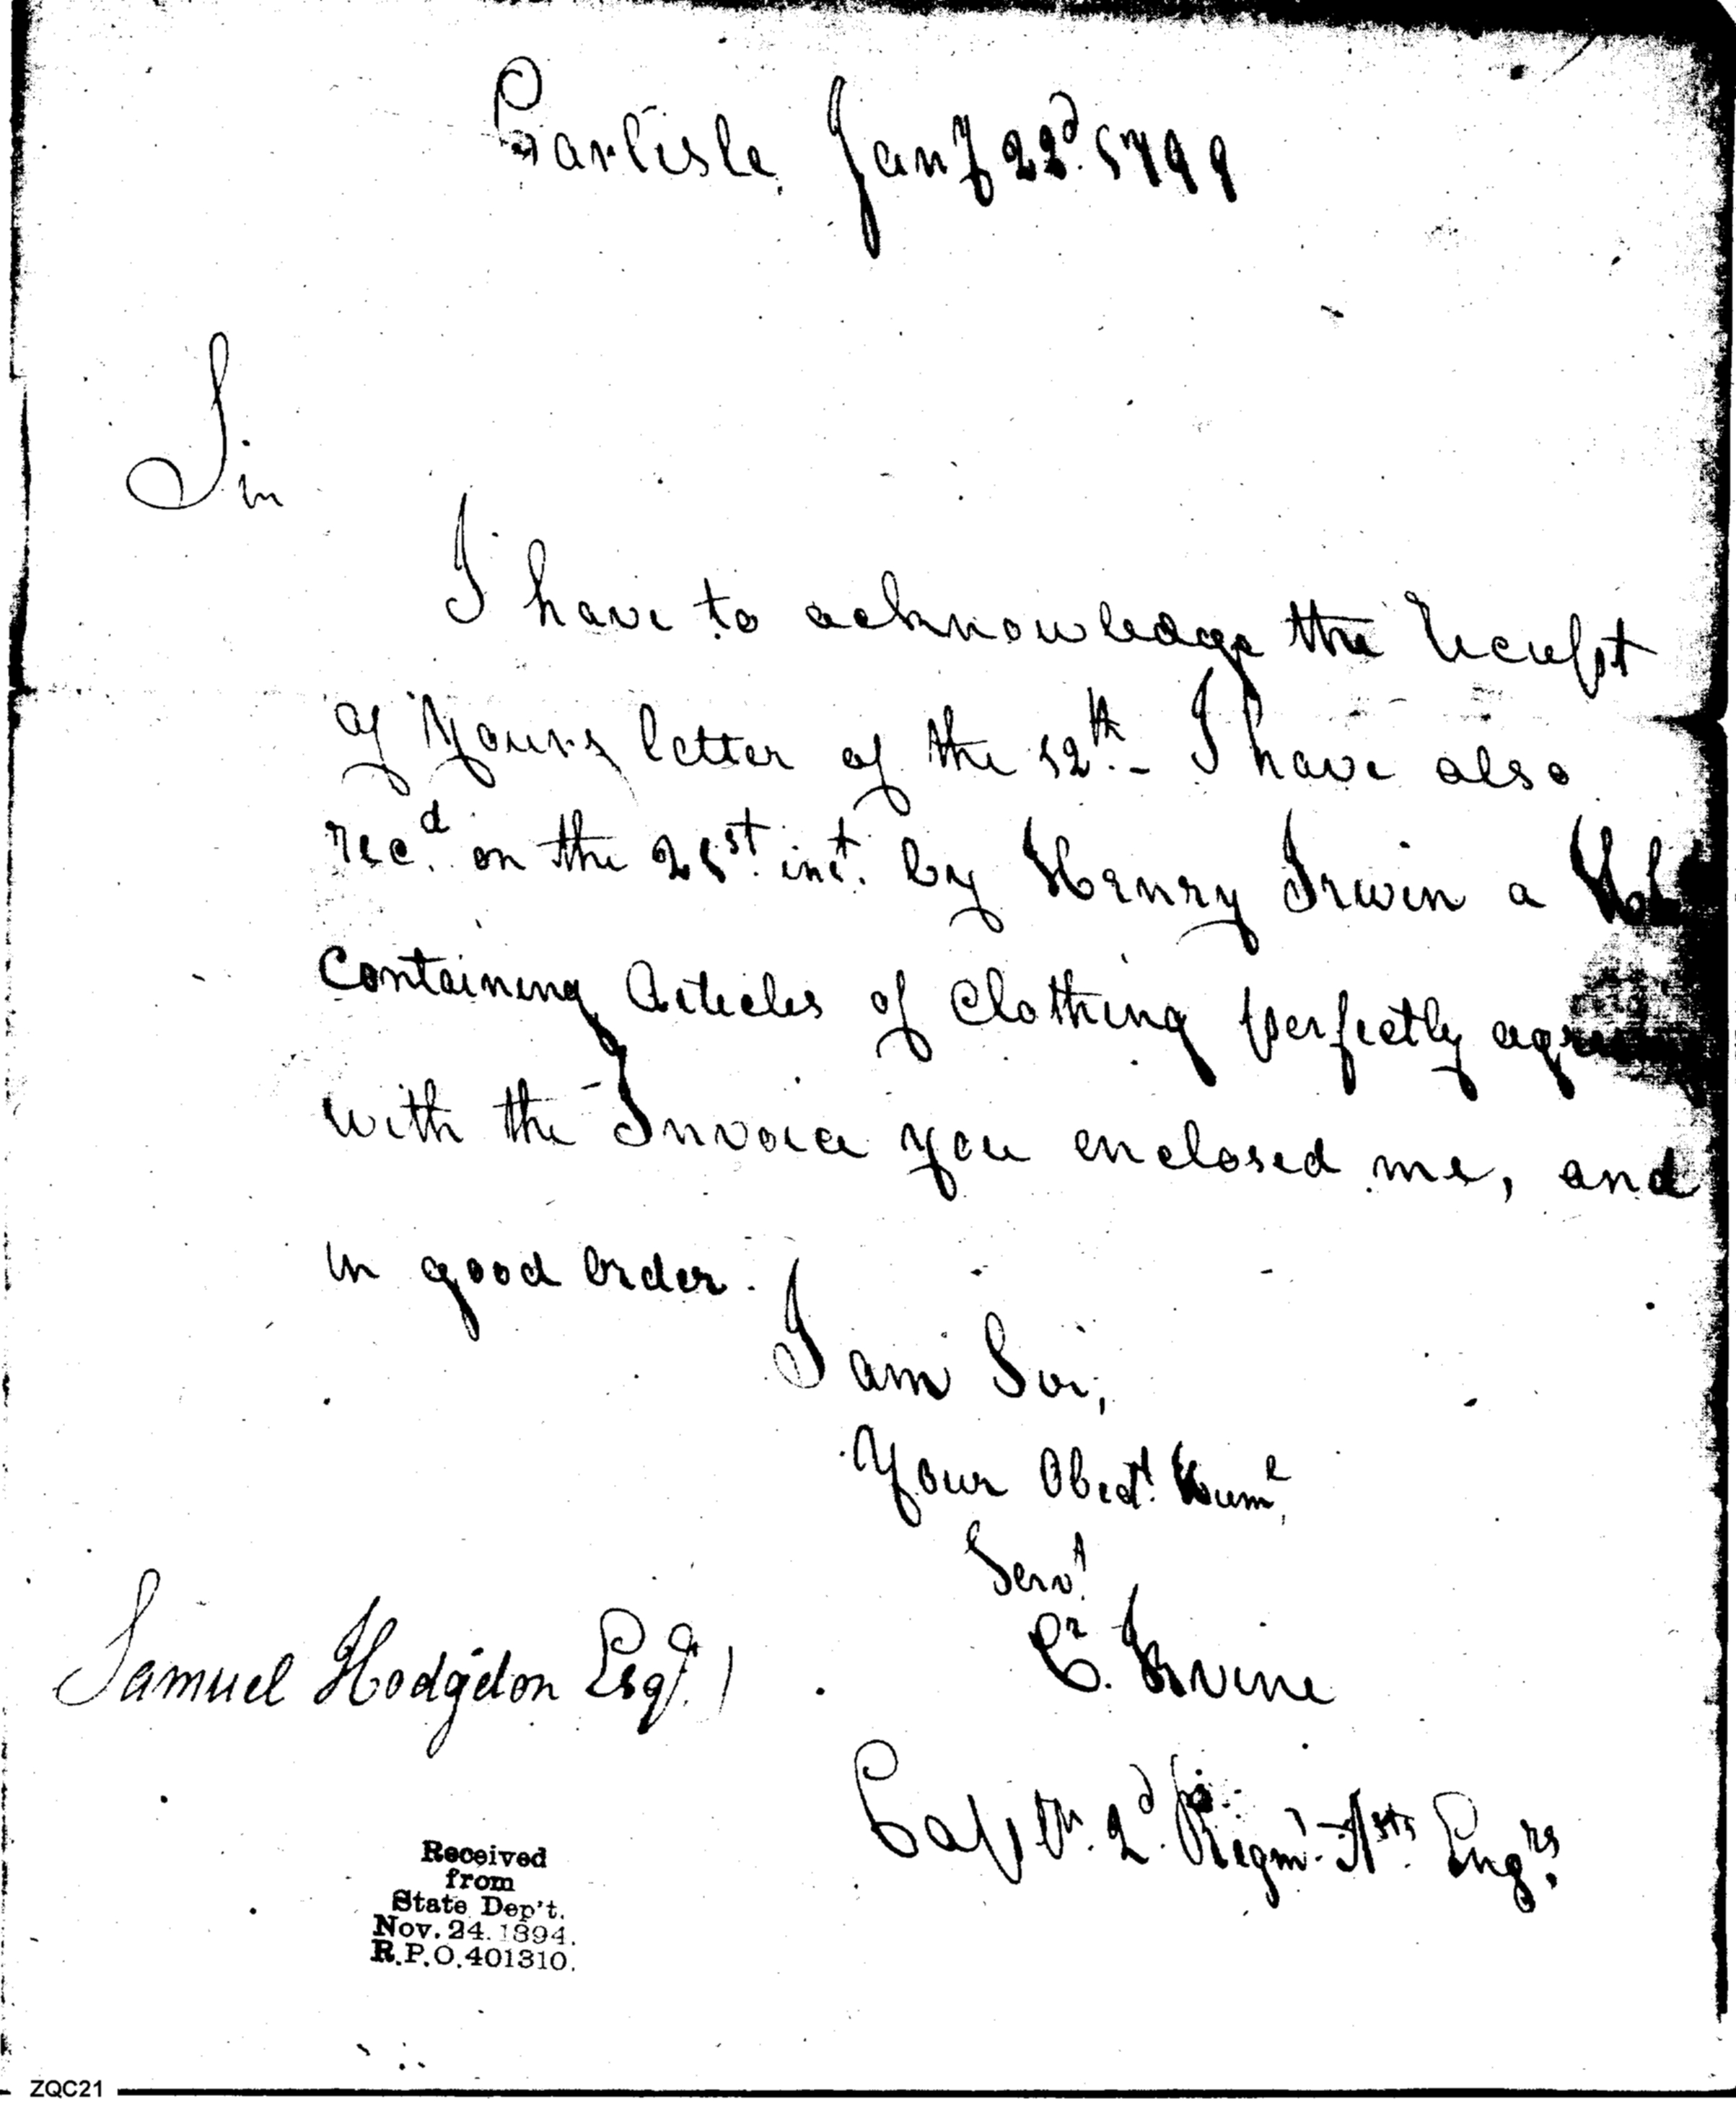 Carlisle, Jany 22d. 1799
Sir
I have to acknowledge the receipt
of Yours letter of the 12th. - I have also
recd. on the 21st. inst. by Henry Irwin a
Containing Articles of Clothing perfectly
with the Invoice you enclosed me, and
in good order.
I am Sir,
Your Obedt. Huml
Servt.
Cr. Irvine
Samuel Hodgdon Esqr. /
Captn. 2d. Regmt. Arts. Engrs.
Received
from
State Dep't.
Nov. 24. 1894.
R.P.O. 401310.
ZQC21